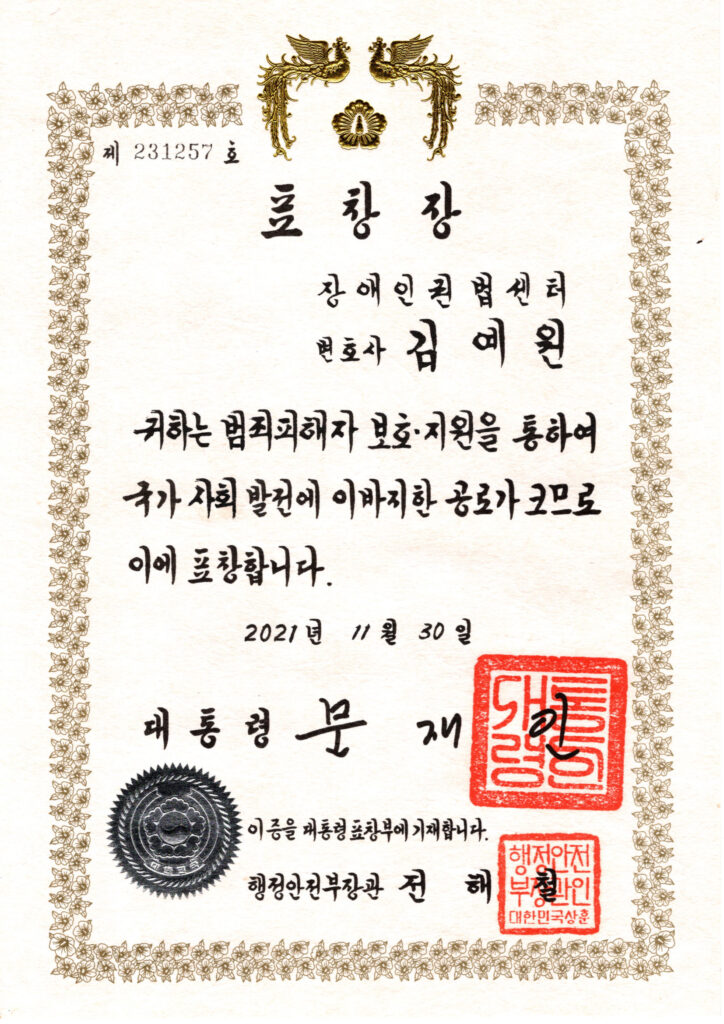 제 231257 호
표 창 장
장애인권법센터
변호사 김 예 원
귀하는 범죄피해자 보호·지원을 통하여
국가 사회 발전에 이바지한 공로가 크므로
이에 표창합니다.
2021년 11월 30일
대통령 문 재 인
대통
령인
이 증을 대통령 표창부에 기재합니다.
행정안전부장관 전 해 철
행정안전
부장관인
대한민국상훈